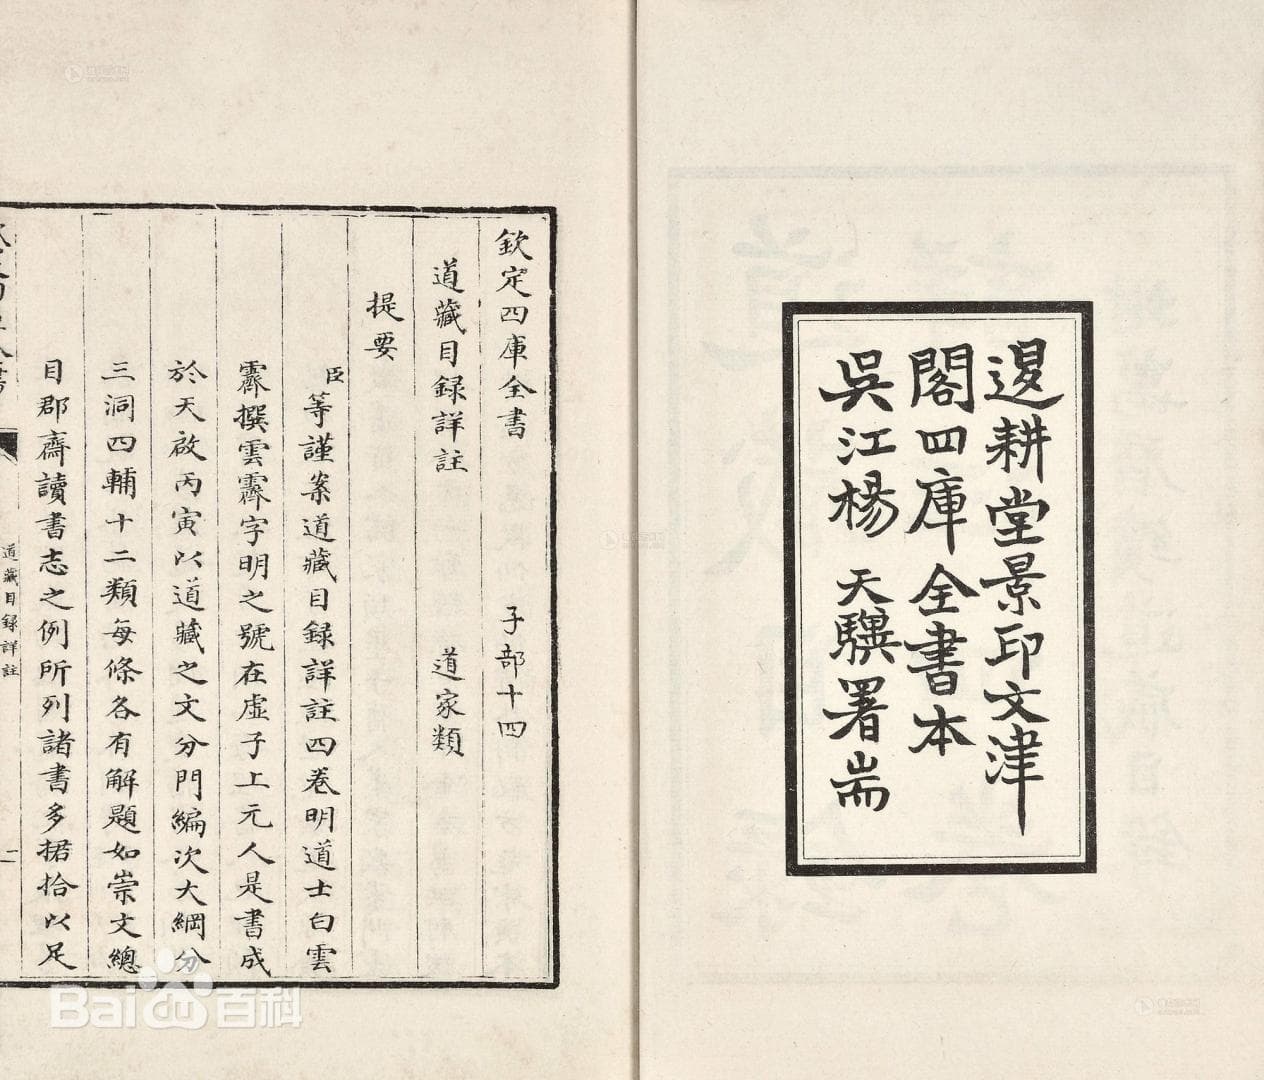 逻耕堂景印文津
閣四庫全書本
吳江楊天驥署耑
欽定四庫全書 子部十四
道藏目錄詳註 道家類
提要
臣等謹案道藏目錄詳註四卷明道士白雲
霽撰雲霽字明之號在虛子上元人是書成
於天啟丙寅以道藏之文分門編次大綱分
三洞四輔十二類每條各有解題如崇文總
目郡齋讀書志之例所列諸書多捃拾以足
道藏目錄詳註
Baidu百科